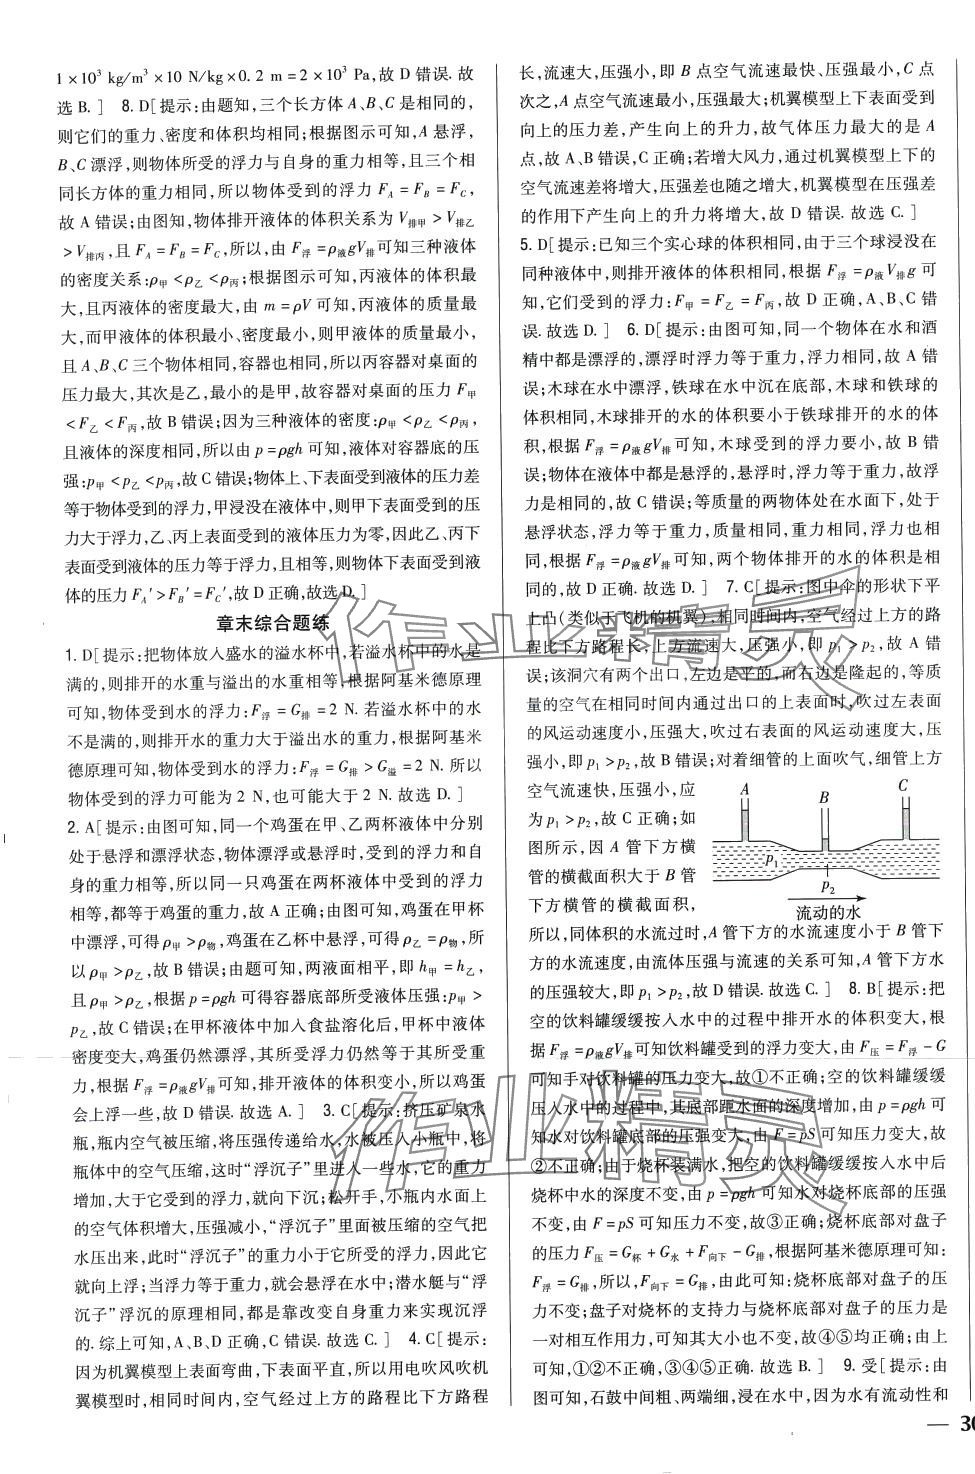 1×10³ kg/m³×10 N/kg×0.2 m=2×10³ Pa,故 D 错误.故
选 B.] 8. D[提示:由题知,三个长方体 A、B、C 是相同的,
则它们的重力、密度和体积均相同;根据图示可知,A 悬浮,
B、C 漂浮,则物体所受的浮力与自身的重力相等,且三个相
同长方体的重力相同,所以物体受到的浮力 F_A=F_B=F_C,
故 A 错误;由图知,物体排开液体的体积关系为 V排甲>V排乙
>V排丙,且 F_A=F_B=F_C,所以,由 F浮=ρ液gV排可知三种液体
的密度关系:ρ甲<ρ乙<ρ丙;根据图示可知,丙液体的体积最
大,且丙液体的密度最大,由 m=ρV 可知,丙液体的质量最
大,而甲液体的体积最小、密度最小,则甲液体的质量最小,
且 A、B、C 三个物体相同,容器也相同,所以丙容器对桌面的
压力最大,其次是乙,最小的是甲,故容器对桌面的压力 F甲
<F乙<F丙,故 B 错误;因为三种液体的密度:ρ甲<ρ乙<ρ丙,
且液体的深度相同,所以由 p=ρgh 可知,液体对容器底的压
强:p甲<p乙<p丙,故 C 错误;物体上、下表面受到液体的压力差
等于物体受到的浮力,甲浸没在液体中,则甲下表面受到的压
力大于浮力,乙、丙上表面受到的液体压力为零,因此乙、丙下
表面受到液体的压力等于浮力,且相等,则物体下表面受到液
体的压力 F_A′>F_B′=F_C′,故 D 正确,故选 D.]
章末综合题练
1. D[提示:把物体放入盛水的溢水杯中,若溢水杯中的水是
满的,则排开的水重与溢出的水重相等,根据阿基米德原理
可知,物体受到水的浮力:F浮=G排=2 N.若溢水杯中的水
不是满的,则排开水的重力大于溢出水的重力,根据阿基米
德原理可知,物体受到水的浮力:F浮=G排>G溢=2 N.所以
物体受到的浮力可能为 2 N,也可能大于 2 N.故选 D.]
2. A[提示:由图可知,同一个鸡蛋在甲、乙两杯液体中分别
处于悬浮和漂浮状态,物体漂浮或悬浮时,受到的浮力和自
身的重力相等,所以同一只鸡蛋在两杯液体中受到的浮力
相等,都等于鸡蛋的重力,故 A 正确;由图可知,鸡蛋在甲杯
中漂浮,可得 ρ甲>ρ物,鸡蛋在乙杯中悬浮,可得 ρ乙=ρ物,所
以 ρ甲>ρ乙,故 B 错误;由题可知,两液面相平,即 h甲=h乙,
且 ρ甲>ρ乙,根据 p=ρgh 可得容器底部所受液体压强:p甲>
p乙,故 C 错误;在甲杯液体中加入食盐溶化后,甲杯中液体
密度变大,鸡蛋仍然漂浮,其所受浮力仍然等于其所受重
力,根据 F浮=ρ液gV排可知,排开液体的体积变小,所以鸡蛋
会上浮一些,故 D 错误.故选 A.] 3. C[提示:挤压矿泉水
瓶,瓶内空气被压缩,将压强传递给水,水被压入小瓶中,将
瓶体中的空气压缩,这时“浮沉子”里进入一些水,它的重力
增加,大于它受到的浮力,就向下沉;松开手,小瓶内水面上
的空气体积增大,压强减小,“浮沉子”里面被压缩的空气把
水压出来,此时“浮沉子”的重力小于它所受的浮力,因此它
就向上浮;当浮力等于重力,就会悬浮在水中;潜水艇与“浮
沉子”浮沉的原理相同,都是靠改变自身重力来实现沉浮
的.综上可知,A、B、D 正确,C 错误.故选 C.] 4. C[提示:
因为机翼模型上表面弯曲,下表面平直,所以用电吹风吹机
翼模型时,相同时间内,空气经过上方的路程比下方路程
长,流速大,压强小,即 B 点空气流速最快、压强最小,C 点
次之,A 点空气流速最小,压强最大;机翼模型上下表面受到
向上的压力差,产生向上的升力,故气体压力最大的是 A
点,故 A、B 错误,C 正确;若增大风力,通过机翼模型上下的
空气流速差将增大,压强差也随之增大,机翼模型在压强差
的作用下产生向上的升力将增大,故 D 错误.故选 C.]
5. D[提示:已知三个实心球的体积相同,由于三个球浸没在
同种液体中,则排开液体的体积相同,根据 F浮=ρ液V排g 可
知,它们受到的浮力:F甲=F乙=F丙,故 D 正确,A、B、C 错
误.故选 D.] 6. D[提示:由图可知,同一个物体在水和酒
精中都是漂浮的,漂浮时浮力等于重力,浮力相同,故 A 错
误;木球在水中漂浮,铁球在水中沉在底部,木球和铁球的
体积相同,木球排开的水的体积要小于铁球排开的水的体
积,根据 F浮=ρ液gV排可知,木球受到的浮力要小,故 B 错
误;物体在液体中都是悬浮的,悬浮时,浮力等于重力,故浮
力是相同的,故 C 错误;等质量的两物体处在水面下,处于
悬浮状态,浮力等于重力,质量相同,重力相同,浮力也相
同,根据 F浮=ρ液gV排可知,两个物体排开的水的体积是相
同的,故 D 正确.故选 D.] 7. C[提示:图中伞的形状下平
上凸(类似于飞机的机翼),相同时间内,空气经过上方的路
程比下方路程长,上方流速大,压强小,即 p₁>p₂,故 A 错
误;该洞穴有两个出口,左边是平的,而右边是隆起的,等质
量的空气在相同时间内通过出口的上表面时,吹过左表面
的风运动速度小,压强大,吹过右表面的风运动速度大,压
强小,即 p₁>p₂,故 B 错误;对着细管的上面吹气,细管上方
空气流速快,压强小,应
为 p₁>p₂,故 C 正确;如
图所示,因 A 管下方横
管的横截面积大于 B 管
下方横管的横截面积,
A
B
C
p₁
p₂
流动的水
所以,同体积的水流过时,A 管下方的水流速度小于 B 管下
方的水流速度,由流体压强与流速的关系可知,A 管下方水
的压强较大,即 p₁>p₂,故 D 错误.故选 C.] 8. B[提示:把
空的饮料罐缓缓按入水中的过程中排开水的体积变大,根
据 F浮=ρ液gV排可知饮料罐受到的浮力变大,由 F压=F浮-G
可知手对饮料罐的压力变大,故①不正确;空的饮料罐缓缓
压入水中的过程中,其底部距水面的深度增加,由 p=ρgh 可
知水对饮料罐底部的压强变大,由 F=pS 可知压力变大,故
②不正确;由于烧杯装满水,把空的饮料罐缓缓按入水中后
烧杯中水的深度不变,由 p=ρgh 可知水对烧杯底部的压强
不变,由 F=pS 可知压力不变,故③正确;烧杯底部对盘子
的压力 F压=G杯+G水+F向下-G排,根据阿基米德原理可知:
F浮=G排,所以,F向下=G排,由此可知:烧杯底部对盘子的压
力不变;盘子对烧杯的支持力与烧杯底部对盘子的压力是
一对相互作用力,可知其大小也不变,故④⑤均正确;由上
可知,①②不正确,③④⑤正确.故选 B.] 9. 受[提示:由
图可知,石鼓中间粗、两端细,浸在水中,因为水有流动性和
— 30
作业精灵
作业精灵